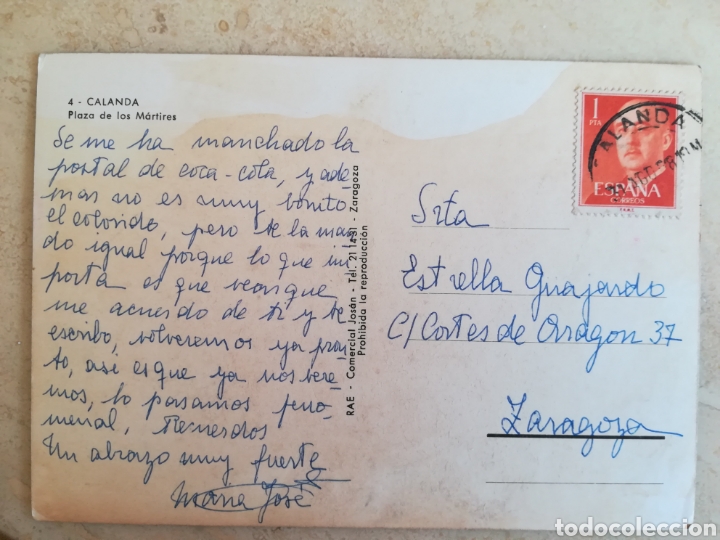 4 - CALANDA
Plaza de los Mártires
Se me ha manchado la
postal de coca-cola, y ade-
mas no es muy bonito
el colorido, pero te la man-
do igual porque lo que im-
porta es que veas que
me acuerdo de ti y te
escribo, volveremos ya pron-
to, así es que ya nos vere-
mos, lo pasamos feno-
menal, Recuerdos
Un abrazo muy fuerte
Maria José
RAE - Comercial Josán - Tél. 211431 - Zaragoza
Prohibida la reproducción
1
PTA
ESPAÑA
CORREOS
CALANDA
Srta
Estrella Guajardo
C/ Cortes de Aragon 37
Zaragoza
todocoleccion